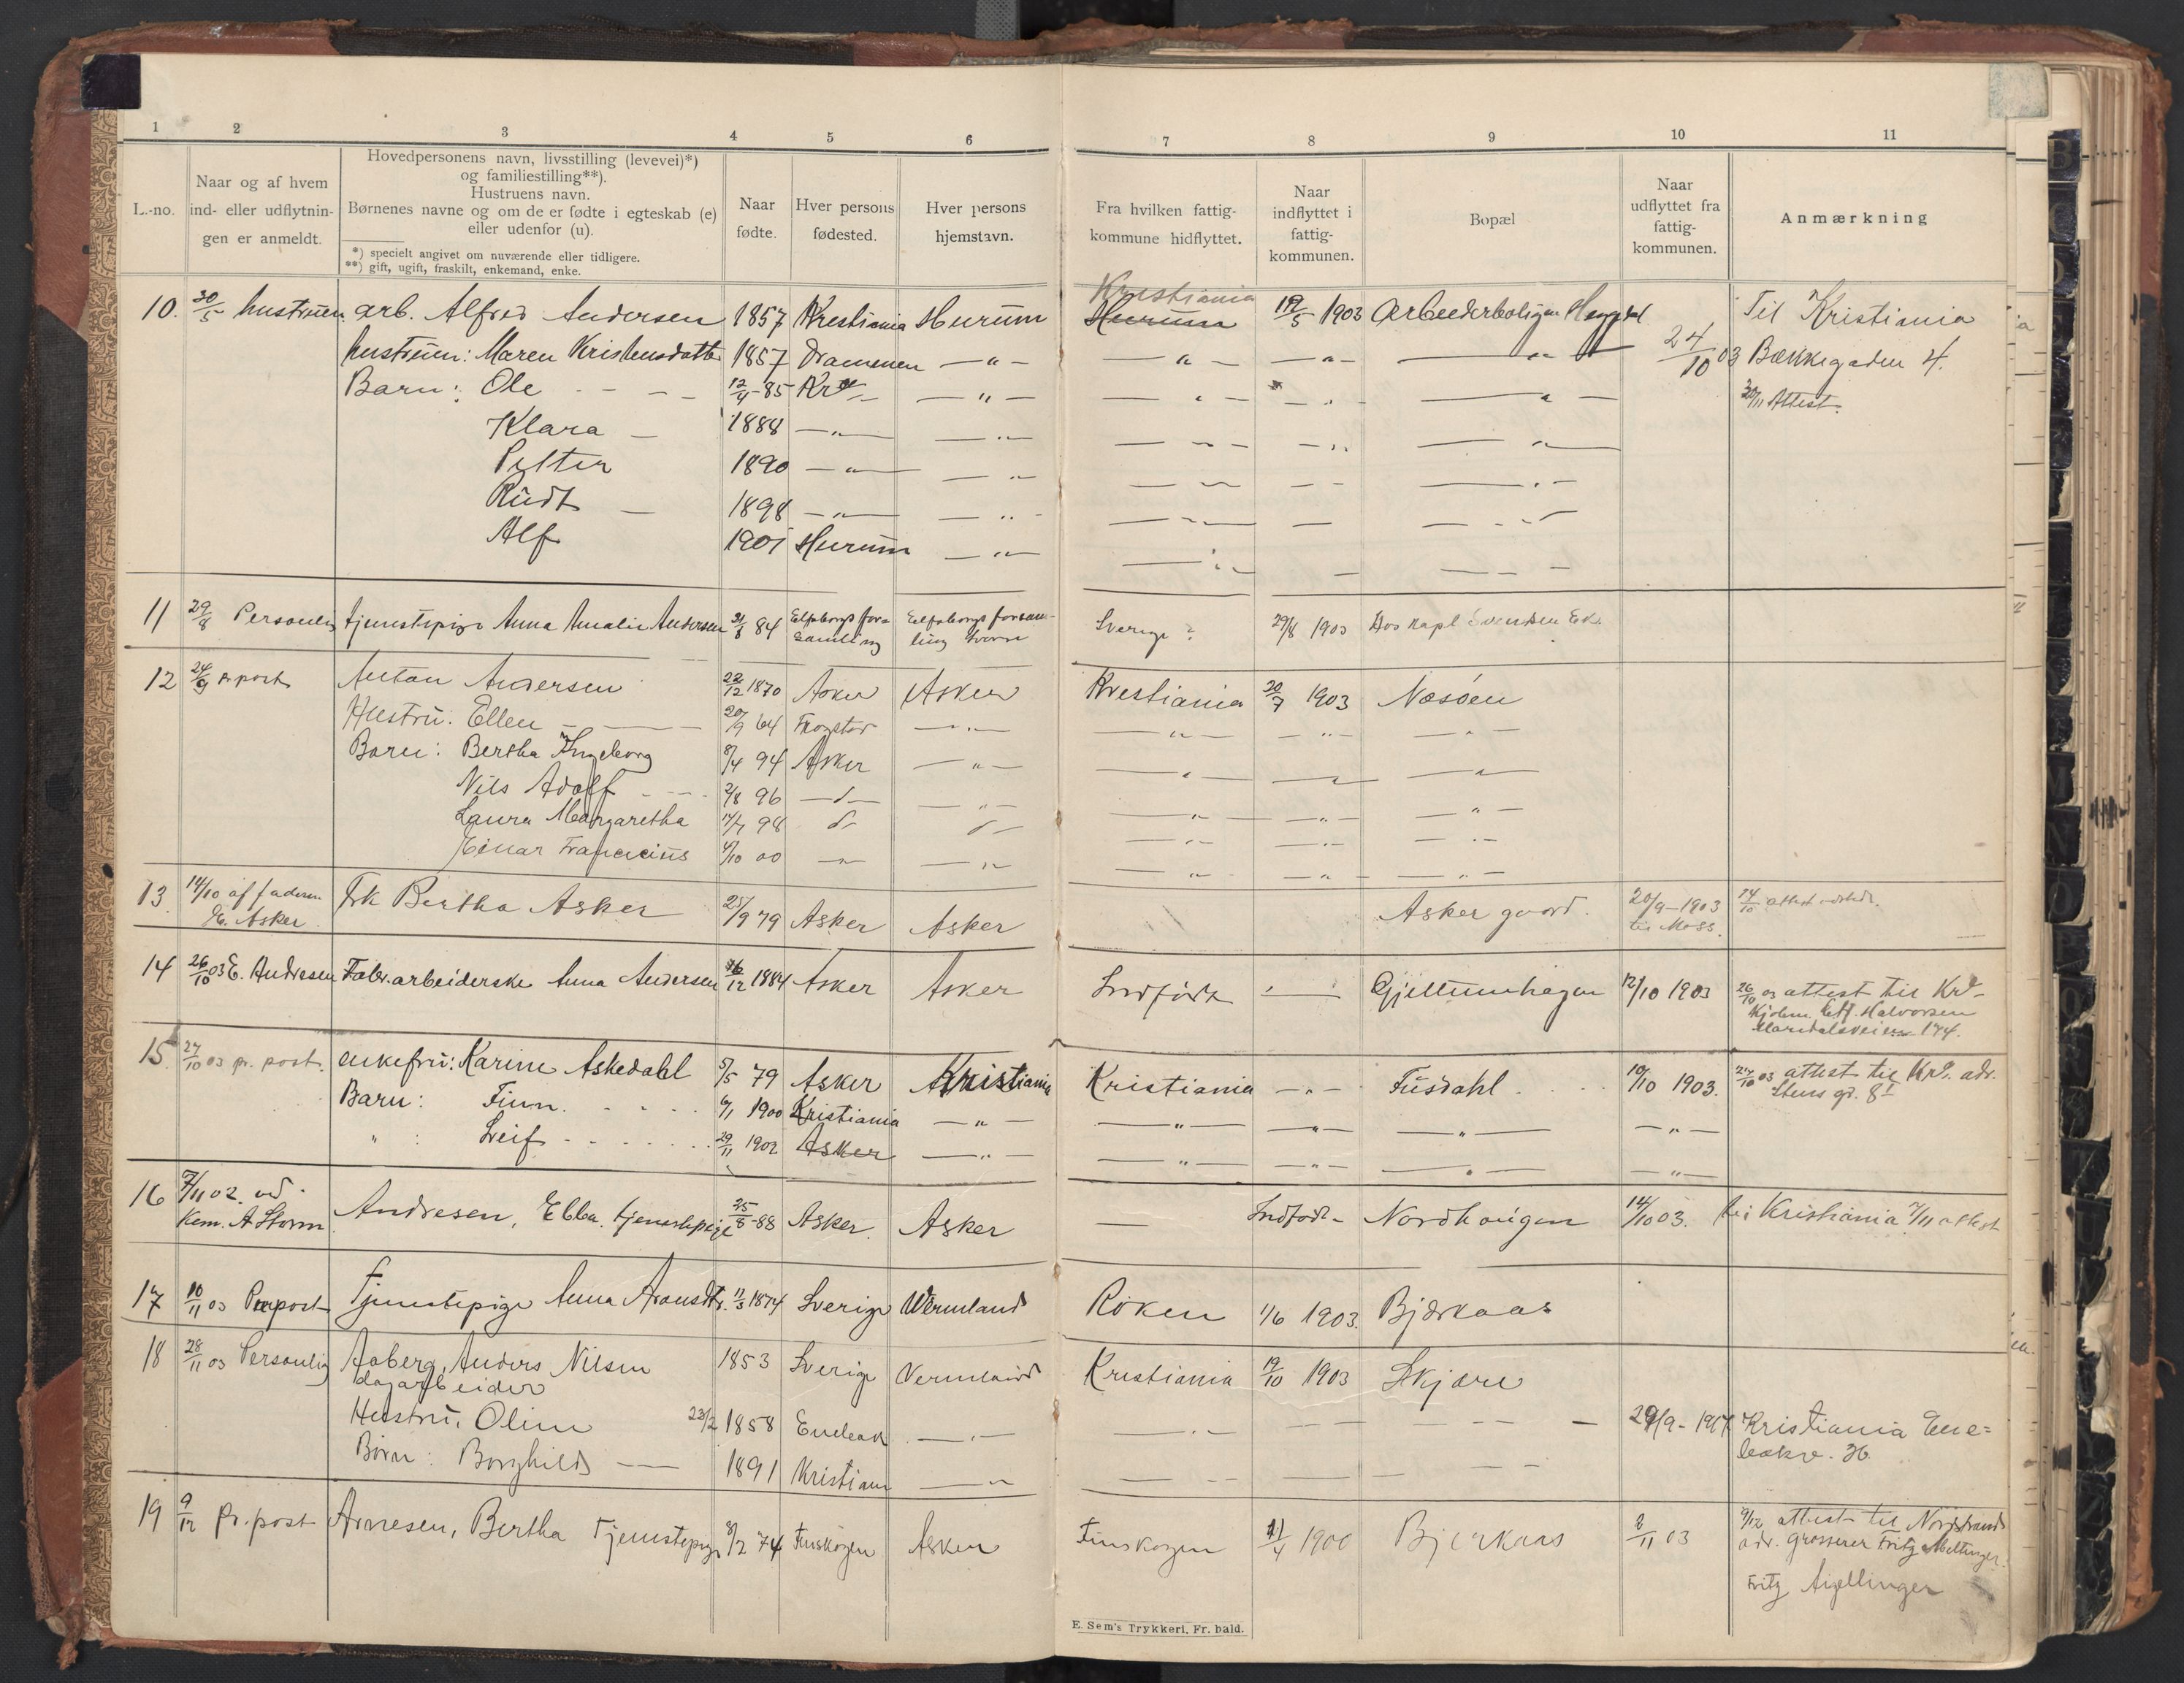 1 2 3 4 5 6 7 8 9 10 11
L.-no.
Naar og af hvem
ind- eller udflytnin-
gen er anmeldt.
Hovedpersonens navn, livsstilling (levevei)*)
og familiestilling**).
Hustruens navn.
Børnenes navne og om de er fødte i egteskab (e)
eller udenfor (u).
*) specielt angivet om nuværende eller tidligere.
**) gift, ugift, fraskilt, enkemand, enke.
Naar
fødte.
Hver persons
fødested.
Hver persons
hjemstavn.
Fra hvilken fattig-
kommune hidflyttet.
Naar
indflyttet i
fattig-
kommunen.
Bopæl
Naar
udflyttet fra
fattig-
kommunen.
Anmærkning
Kristiania
10. 30/5 hustruen arb. Alfred Andersen 1857 Kristiania Hurum Hurum 19/5 1903 Til Kristiania
hustruen: Maren Kristensdatter 1857 Drammen — " — — " — — " — — " — 24/10 03 Bækkegaden 4.
Barn: Ole 12/4-85 Kra — " — — " — — " — — " — 30/11 Attest.
Klara — 1888 — " — — " — — " — — " — — " —
Petter 1890 — " — — " — — " — — — — " —
Rudt — 1898 — " — — " — — " — — — " —
Alf 1901 Hurum — " — — " — — — —
11 29/8 Personlig tjenestepige Anna Amalie Andersen 84 Elfsborgs for= Elfsborgs forsam- Sverige ? 29/8 1903 Hos Kapl Svendsen Ek.
samling ling Sverre
12 24/9 pr post Anton Andersen 22/12 1870 Asker Asker Kristiania 20/7 1903 Næsøen
Hustru: Ellen — 20/9 64 Trogstad — " — — " — — " — — " —
Barn: Bertha Ingeborg 8/4 94 Asker — " — — " — — " — — " —
Nils Adolf 2/8 96 — d — — " — — " — — " — — " —
Laura Margaretha 98 d — d — — " — — " — — " —
Einar Franciscius 4/10 00 — " — — " — — " — — " — — " —
13. 14/10 af faderen Frk Bertha Asker 25/9 79 Asker Asker Asker gaard. 20/9-1903 14/10 attest udstedt.
H. Asker. til Moss.
14 26/10 03 E. Andresen Fabr.arbeiderske Anna Andersen 16/12 1884 Asker Asker Indfødt — Gjellumhagen 12/10 1903 26/10 03 attest til Kra
Kjøbm. Halvorsen
Maridalsveien 174.
15. 27/10 03 pr. post. enkefru: Karine Askedahl 5/5 79 Asker Kristiania Kristiania — " — Fusdahl 10/10 1903. 27/10 03 attest til Kra. adr.
Barn: Finn. 6/1 1900 Kristiania — " — — " — — " — — " — — " — Stens gd. 8 I
" : Leif 29/11 1902 Asker — " — — " — — " — — " — — " —
16 7/11 02. ved
Kem. A Storm Andresen, Ebba. tjenestepige 25/8-88 Asker. Asker — Indfødt Nordhaugen 14/10 03. til Kristiania 7/11 attest
17 10/11 03 Pr post Tjenestepige Anna Aronsdtr. 1874 Sverige Wermland Røken 1/6 1903. Bjerkaas
18 28/11 03 Personlig Aaberg, Anders Nilsen 1853 Sverige Vermland Kristiania 19/10 1903 Skjære
dagarbeider
Hustru, Oline 23/2 1858 Enebak — " — — " — — — — — — 29/9-1917 Kristiania Ene=
Børn: Borghild — 1891 Kristiania — " — — — — — bakv. 36
19 9/12 pr. post Arnesen, Bertha Tjenestepige 8/2 74 Finskogen Asker Finskogen 11/4 1900 Bjerkaas 2/11 03 9/12 attest til Nordstrand
adr. grosserer Fritz Meltinger.
Fritz Aigellinger
E. Sem's Trykkeri, Fr. hald.